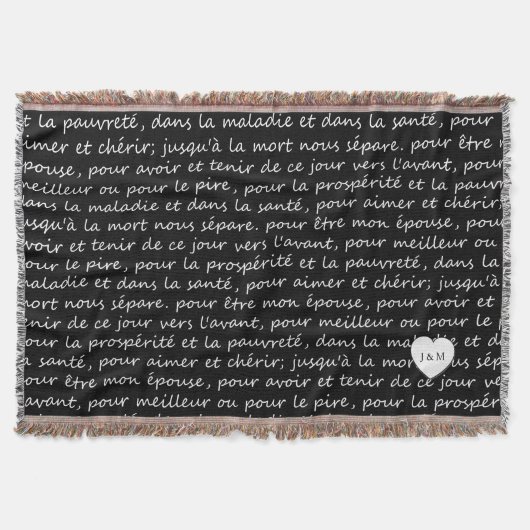 t la pauvreté, dans la maladie et dans la santé, pour
aimer et chérir; jusqu'à la mort nous sépare. pour être m
épouse, pour avoir et tenir de ce jour vers l'avant, pour
meilleur ou pour le pire, pour la prospérité et la pauvr
dans la maladie et dans la santé, pour aimer et chérir;
jusqu'à la mort nous sépare. pour être mon épouse, pour
avoir et tenir de ce jour vers l'avant, pour meilleur ou
pour le pire, pour la prospérité et la pauvreté, dans la
maladie et dans la santé, pour aimer et chérir; jusqu'à
mort nous sépare. pour être mon épouse, pour avoir et
tenir de ce jour vers l'avant, pour meilleur ou pour le p
pour la prospérité et la pauvreté, dans la maladie et d
la santé, pour aimer et chérir; jusqu'à la mort nous sép
pour être mon épouse, pour avoir et tenir de ce jour ve
l'avant, pour meilleur ou pour le pire, pour la prospéri
J & M